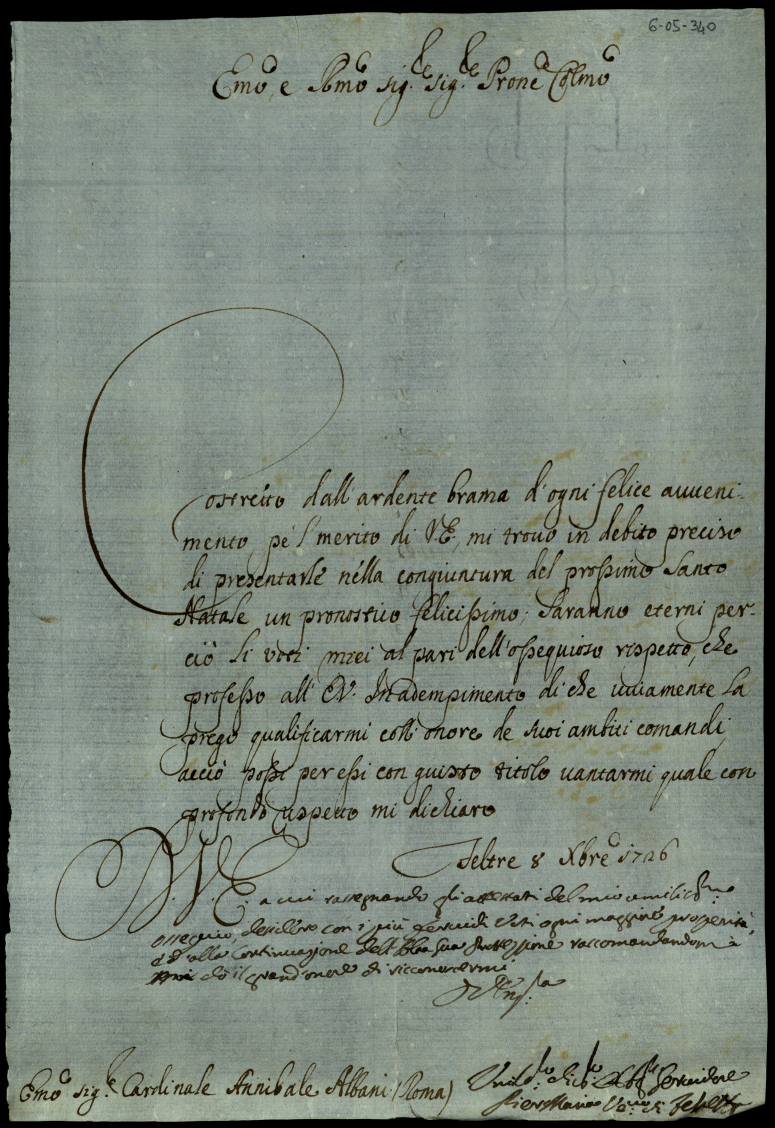 6-05-340
Emo e Rmo sig.re sig.re Prone Colmo
Costretto dall'ardente brama d'ogni felice avveni-
mento, pe'l merito di V.E., mi trovo in debito preciso
di presentarle nella congiuntura del prossimo Santo
Natale un pronostico felicissimo; Saranno eterni per-
ciò li voti miei al pari dell'ossequioso rispetto, che
professo all'E.V. In adempimento di che vivamente La
prego qualificarmi coll'onore de suoi ambiti comandi,
acciò possi per essi con giusto titolo vantarmi quale con
profondo rispetto mi dichiaro
Di V.E. Feltre 8 Xbre 1726
a cui rassegnando gli attestati del mio umilissmo
ossequio, desidero con i più fervidi voti ogni maggiore prosperità,
ed alla continuazione dell' sua protezzione raccomandandomi
il grand'onore di
Emo sig.re Cardinale Annibale Albani (Roma)
Servidore
Pier Maria Vo di Feltre